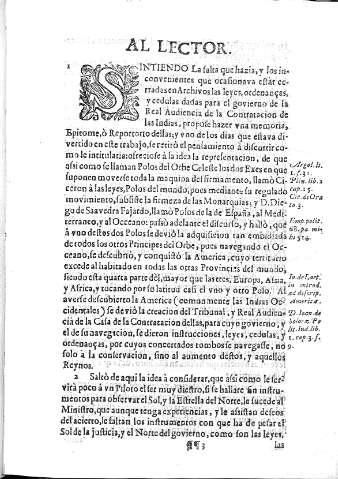 AL LECTOR.
1 SINTIENDO La falta que hazia, y los in-
convenientes que ocasionava estàr ce-
rradas en Archivos las leyes, ordenanças,
y cedulas dadas para el govierno de la
Real Audiencia de la Contratacion de
las Indias, propuse hazer vna memoria,
Epitome, ò Reportorio dellas; y vno de los dias que estava di-
vertido en este trabajo, se retirò el pensamiento à discurrir co-
mo le intitularia: ofreciose à la idea la representacion, de que
assi como se llaman Polos del Orbe Celeste los dos Exes en que
suponen moverse toda la maquina del firmamento, llamò Ci-
ceron à las leyes, Polos del mundo, pues mediante su regulado
movimiento, subsiste la firmeza de las Monarquias; y D. Die-
go de Saavedra Fajardo, llamò Polos de la de España, al Medi-
terraneo, y al Occeano: passò adelante el discurso, y hallò, que
à vno destos dos Polos se deviò la adquisicion tan embidiada
de todos los otros Principes del Orbe, pues navegando el Oc-
ceano, se descubriò, y conquistò la America, cuyo territorio
excede al habitado en todas las otras Provincias del mundo,
siendo esta quarta parte del, mayor que las tres, Europa, Asia,
y Africa, y tocando por su latitud casi el vno y otro Polo. Al
averse descubierto la America (comunmente las Indias Oc-
cidentales) se deviò la creacion del Tribunal, y Real Audien-
cia de la Casa de la Contratacion dellas, para cuyo govierno, y
el de su navegacion, se dieron instrucciones, leyes, cedulas, y
ordenanças, por cuyos concertados rombos se navegasse, no
solo à la conservacion, sino al aumento destos, y aquellos
Reynos.
2 Saltò de aqui la idea à considerar, que assi como le ser-
virà poco à vn Piloto el ser muy diestro, si se hallare sin instru-
mentos para observar el Sol, y la Estrella del Norte, le sucede al
Ministro, que aunque tenga experiencias, y le assistan deseos
del acierto, le faltan los instrumentos con que ha de pesar el
Sol de la justicia, y el Norte del govierno, como son las leyes,
¶¶ 3 las
Argol. li.
1. f. 31.
Plin. lib. 2
cap. 15.
Cic. de Ora
to. 3.
Emp. polit.
D. Iuan de